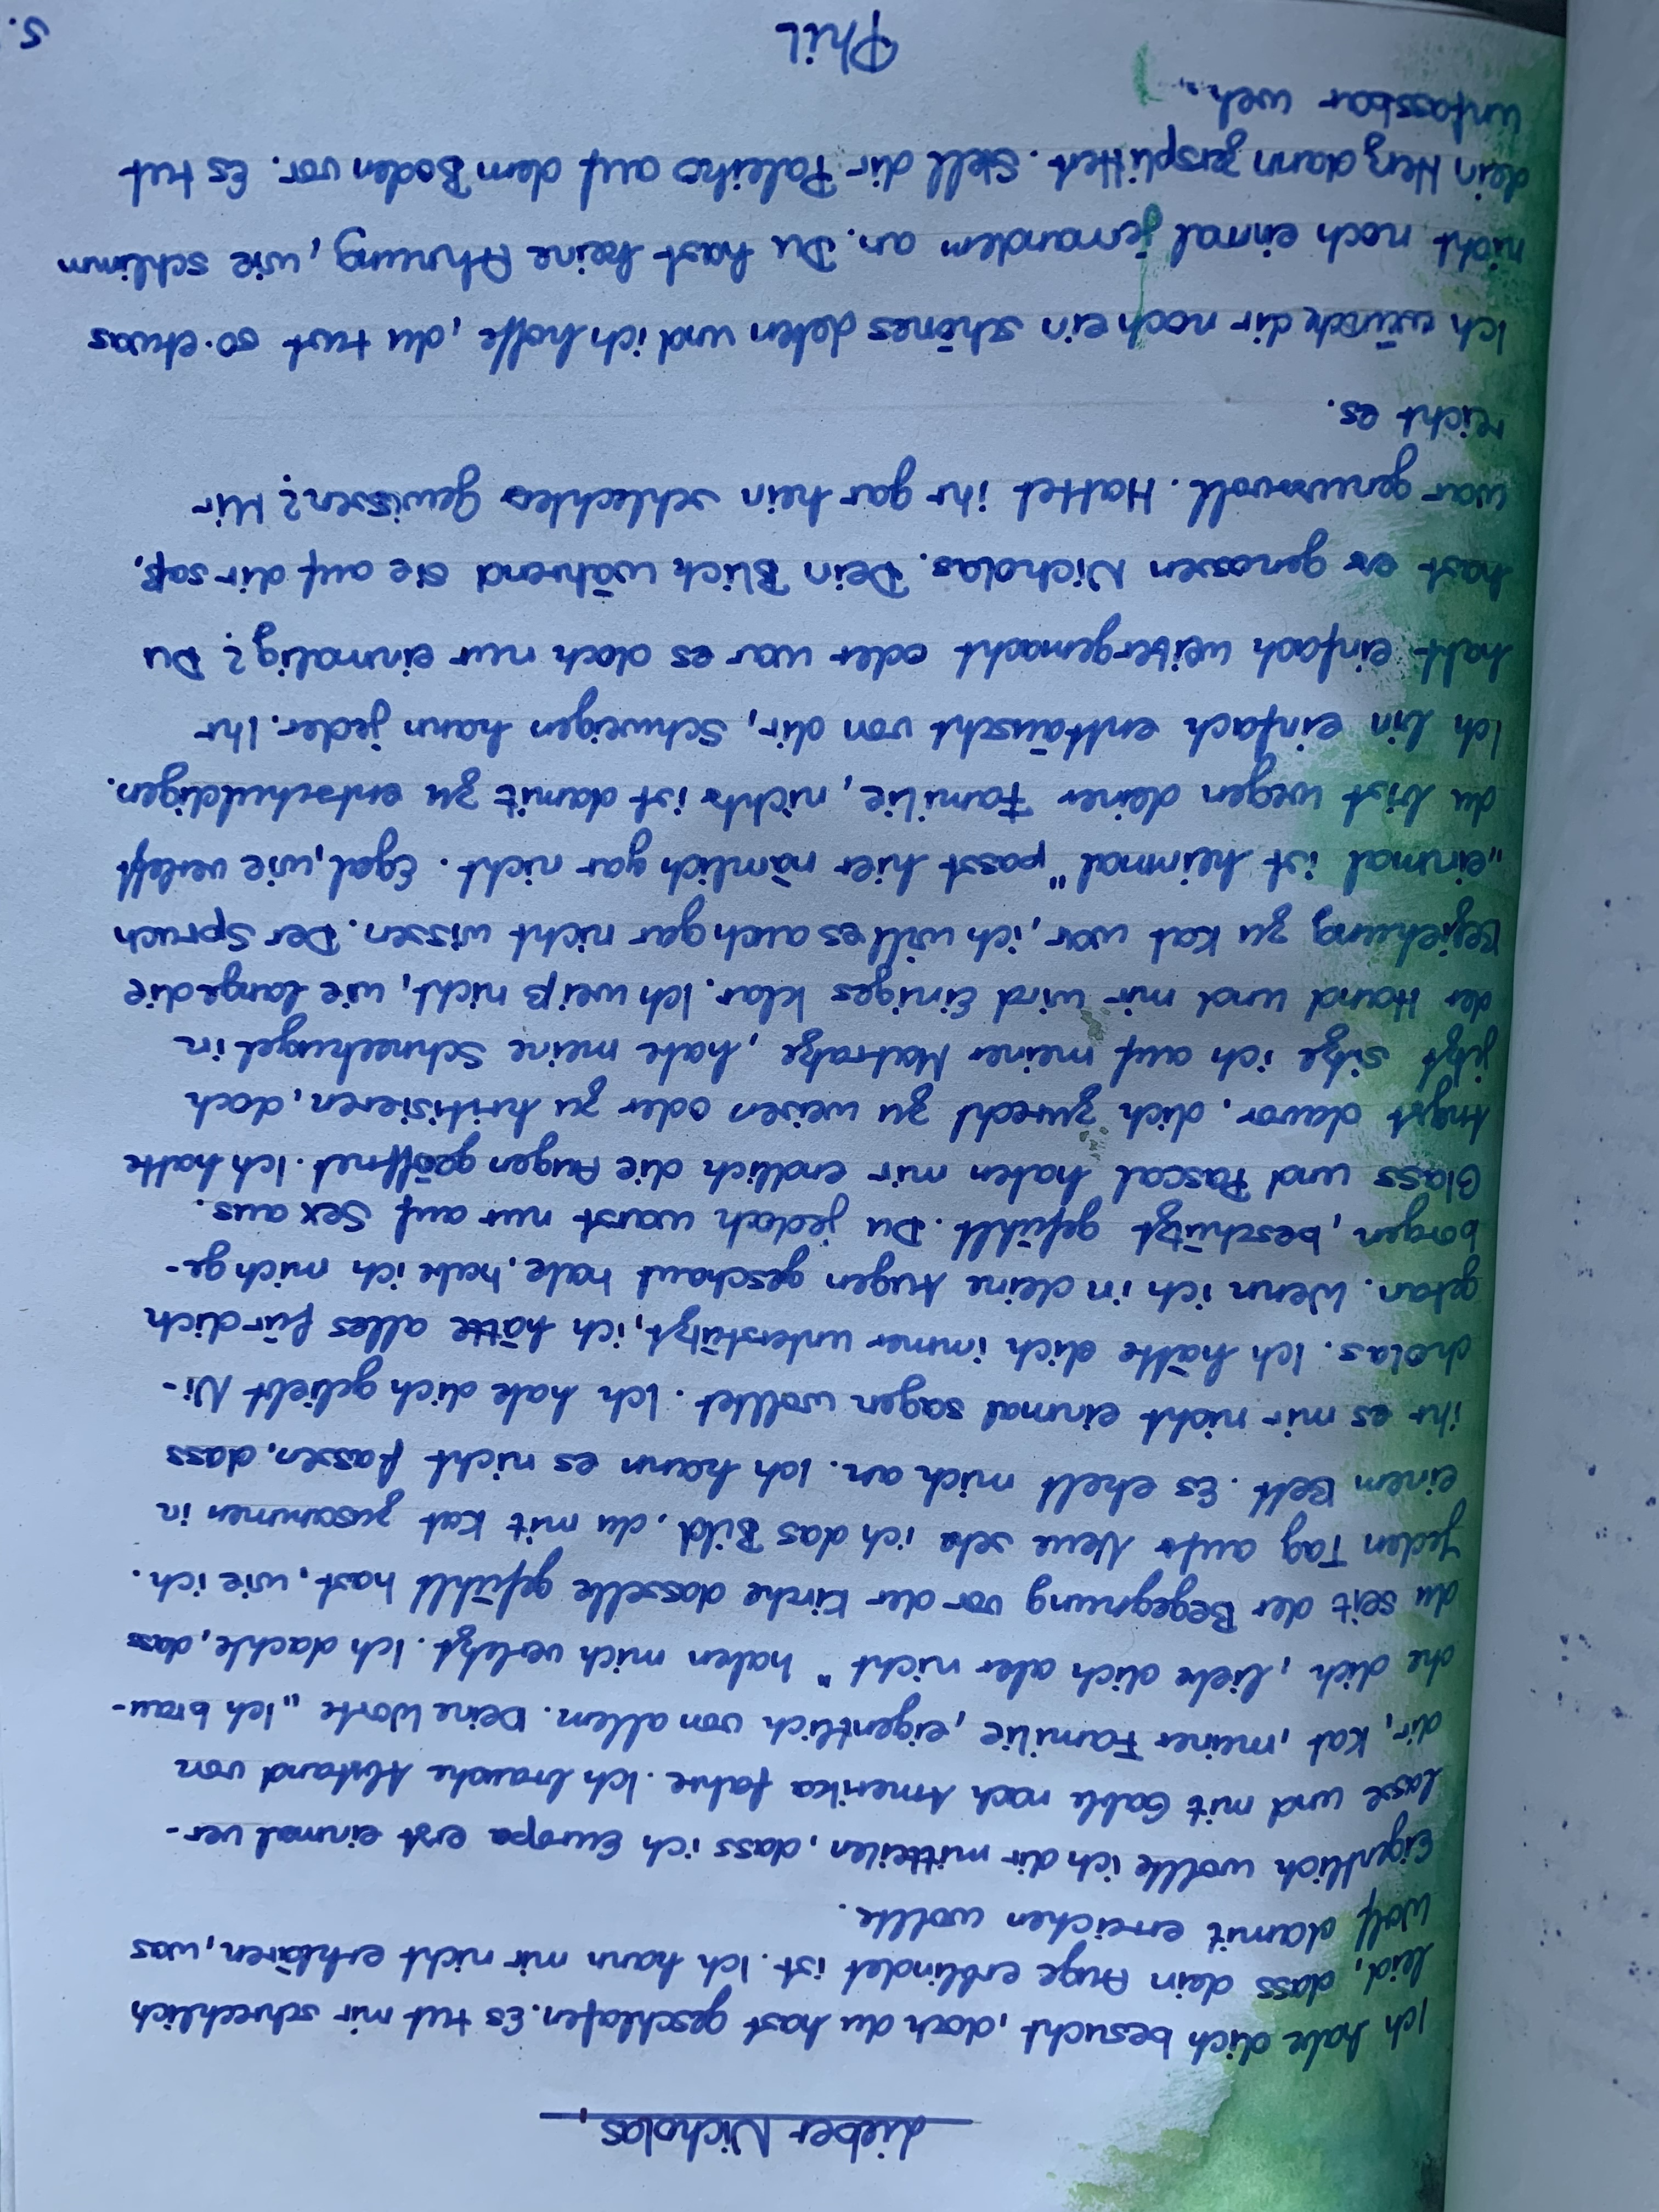 Lieber Nicholas,
Ich habe dich besucht, doch du hast geschlafen. Es tut mir schrecklich
leid, dass dein Auge erblindet ist. Ich kann mir nicht erklären, was
Wolf damit erreichen wollte.
Eigentlich wollte ich dir mitteilen, dass ich Europa erst einmal ver-
lasse und mit Gable nach Amerika fahre. Ich brauche Abstand von
dir, Kat, meiner Familie, eigentlich von allem. Deine Worte „Ich brau-
che dich, liebe dich aber nicht" haben mich verletzt. Ich dachte, dass
du seit der Begegnung vor der Kirche dasselbe gefühlt hast, wie ich.
Jeden Tag aufs Neue sehe ich das Bild, du mit Kat zusammen in
einem Bett. Es ekelt mich an. Ich kann es nicht fassen, dass
ihr es mir nicht einmal sagen wolltet. Ich habe dich geliebt Ni-
cholas. Ich hätte dich immer unterstützt, ich hätte alles für dich
getan. Wenn ich in deine Augen geschaut habe, habe ich mich ge-
borgen, beschützt gefühlt. Du jedoch warst nur auf Sex aus.
Glass und Pascal haben mir endlich die Augen geöffnet. Ich hatte
Angst davor, dich zurecht zu weisen oder zu kritisieren, doch
jetzt sitze ich auf meiner Matratze, habe meine Schneekugel in
der Hand und mir wird Einiges klar. Ich weiß nicht, wie lange die
Beziehung zu Kat war, ich will es auch gar nicht wissen. Der Spruch
„einmal ist keinmal" passt hier nämlich gar nicht. Egal, wie verletzt
du bist wegen deiner Familie, nichts ist damit zu entschuldigen.
Ich bin einfach enttäuscht von dir, Schweigen kann jeder. Ihr
habt einfach weitergemacht oder war es doch nur einmalig? Du
hast es genossen Nicholas. Dein Blick während sie auf dir saß,
war genussvoll. Hattet ihr gar kein schlechtes Gewissen? Mir
reicht es.
Ich wünsche dir noch ein schönes Leben und ich hoffe, du tust so etwas
nicht noch einmal jemandem an. Du hast keine Ahnung, wie schlimm
dein Herz dann zersplittert. Stell dir Paleiko auf dem Boden vor. Es tut
unfassbar weh...
Phil
S.